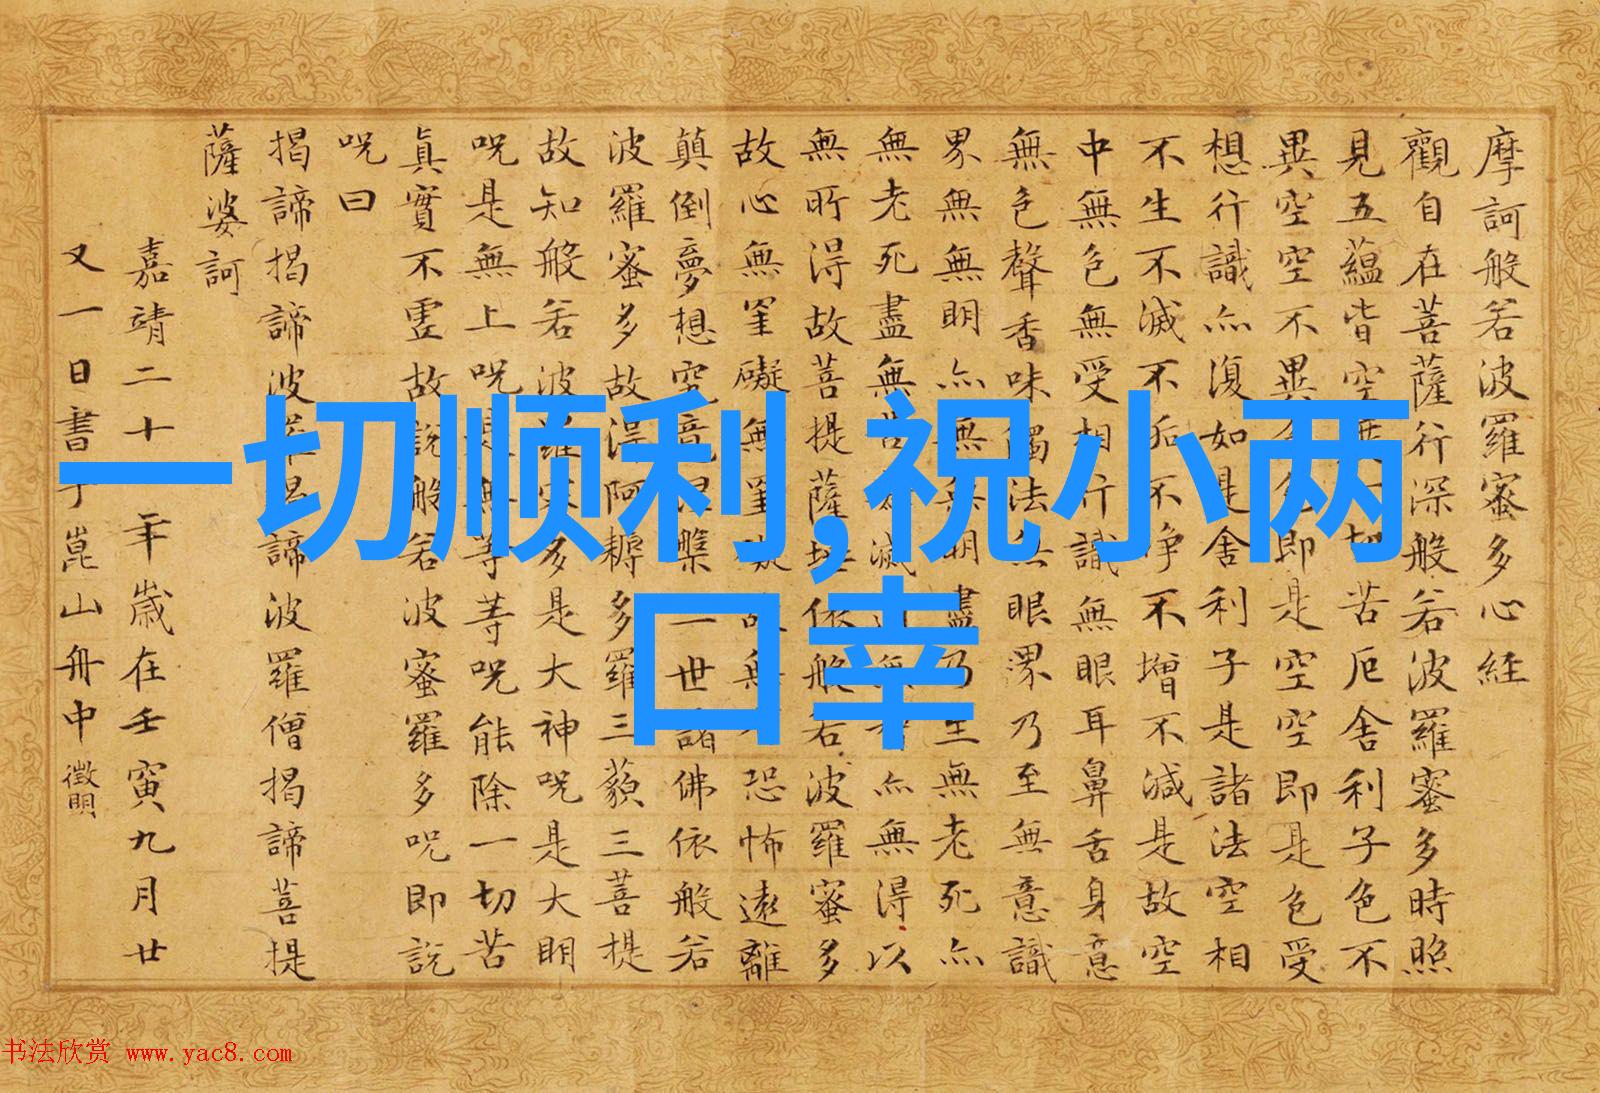 一切顺利,祝小两
口幸
摩訶般若波羅蜜多心経
觀自在菩薩行深般若波羅蜜多時照
見五蘊皆空度一切苦厄舍利子色不
異空空不異色色即是空空即是色受
想行識亦復如是舍利子是諸法空相
不生不滅不垢不淨不增不減是故空
中無色無受相行識無眼耳鼻舌身意
無色聲香味觸法無眼界乃至無意識
界無無明亦無無明盡乃至無老死亦
無老死盡無苦滅無亦無得以
無所得故菩提薩埵依般若波羅蜜多
故心無罣礙無罣礙故無恐怖遠離
顛倒夢想究竟涅槃一世諸佛依般若
波羅蜜多故得阿耨多羅三藐三菩提
故知般若波羅蜜多是大神咒是大明
咒是無上咒是無等等咒能除一切苦
真實不虛故說般若波蜜羅多咒即說
咒曰
揭諦揭諦波羅揭諦波羅僧揭諦菩提
薩婆訶
嘉靖二十年歲在壬寅九月廿
又一日書于崑山舟中 徵明
书法欣赏 www.yac8.com